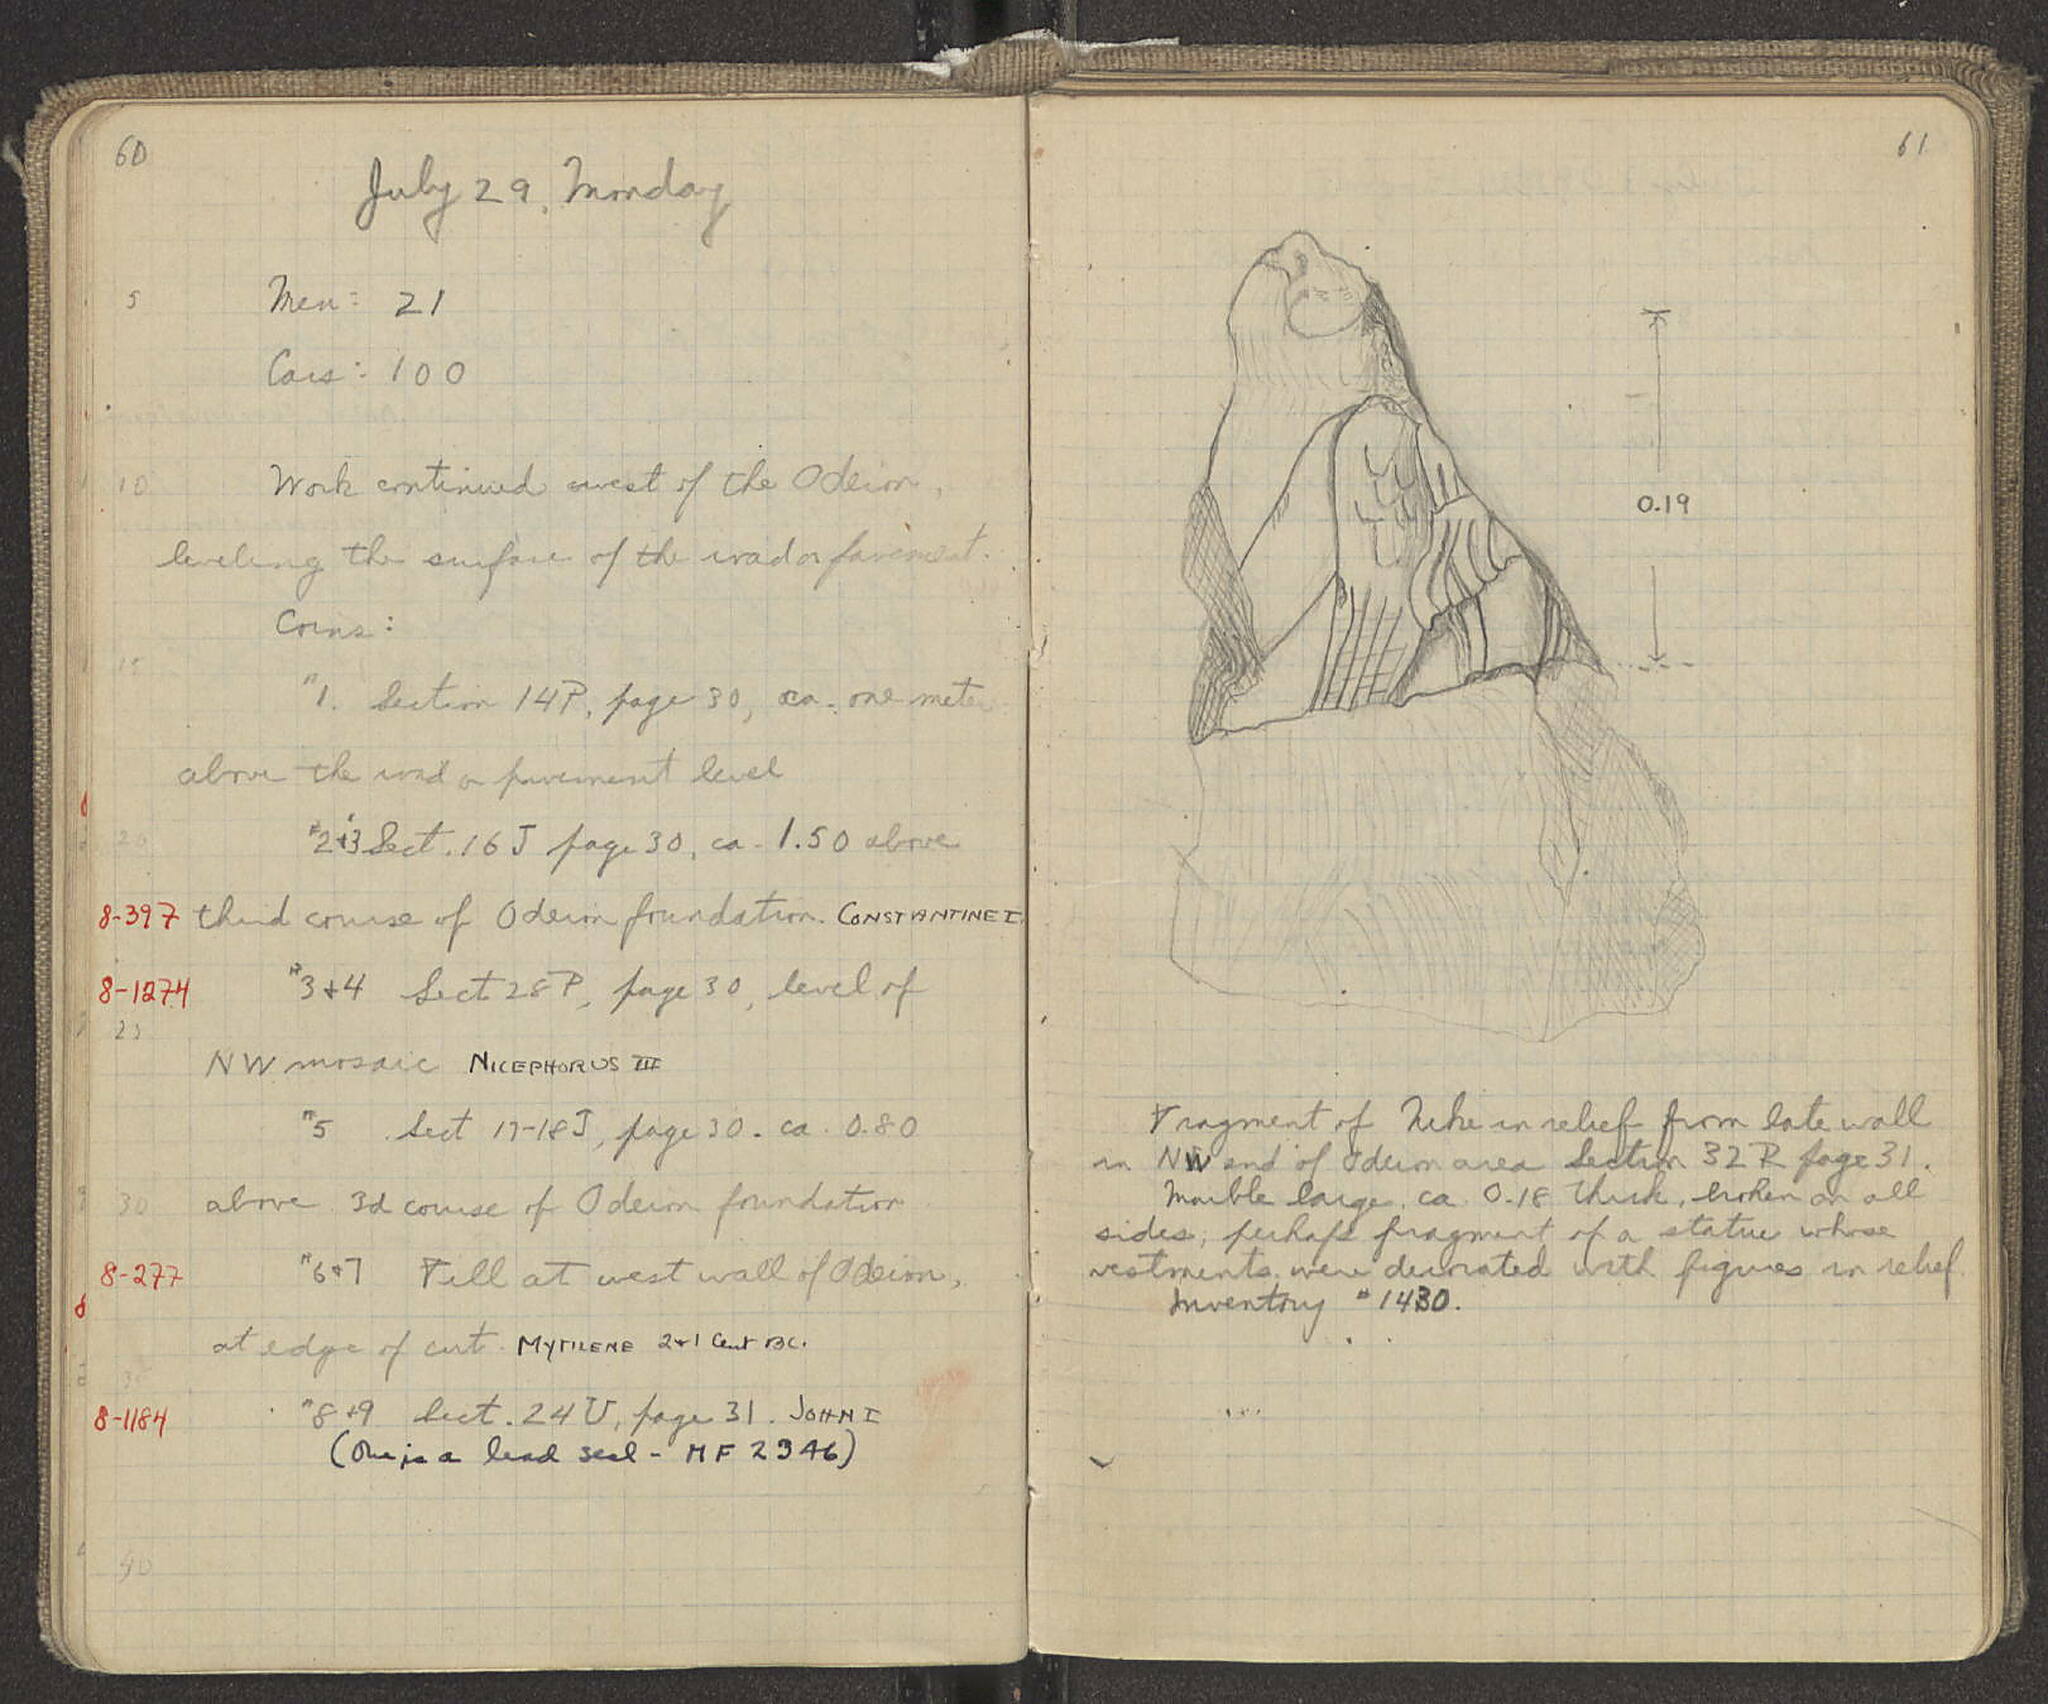 60
July 29, Monday
5 Men: 21
Cars: 100
10 Work continued west of the Odeion,
leveling the surface of the road or pavement.
Coins:
15
"1. Section 14P, page 30, ca. one meter
above the road or pavement level
20 #2+3 Sect. 16 J page 30, ca. 1.50 above
8-397 third course of Odeion foundation. CONSTANTINE I.
8-1274 "3+4 Sect 28P, page 30, level of
25
NW mosaic NICEPHORUS III
"5 Sect 17-18J, page 30. ca. 0.80
30 above 3d course of Odeion foundation
8-277 "6+7 Fill at west wall of Odeion,
at edge of cut. MYTILENE 2+1 Cent BC.
35
8-1184 "8+9 Sect. 24 U, page 31. JOHN I
(One is a lead seal - MF 2346)
40
61
0.19
Fragment of Nike in relief from late wall
in NW end of Odeion area Section 32 R page 31.
Marble large, ca 0.18 thick, broken on all
sides; perhaps fragment of a statue whose
vestments were decorated with figures in relief
Inventory #1430.